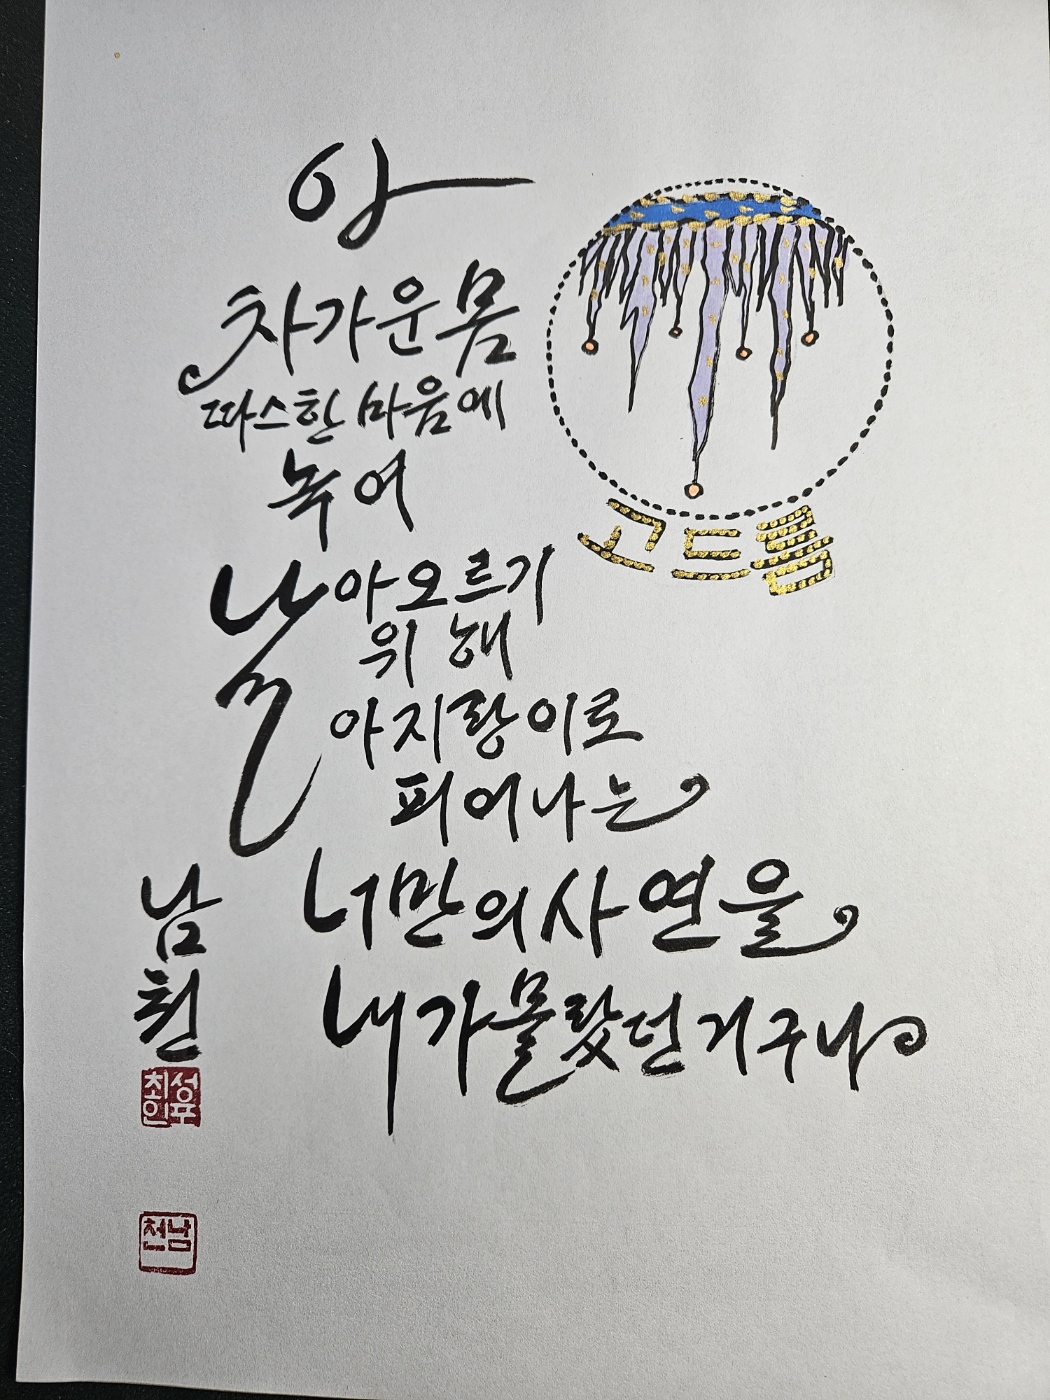 아
차가운 몸
따스한 마음에
녹어
날아오르기
위해
아지랑이로
피어나는
너만의 사연을
내가 몰랐던 거구나
고드름
남천
남천